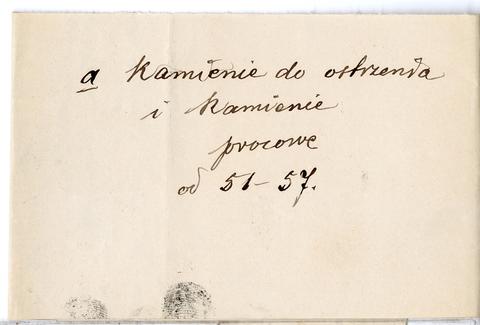 a Kamienie do ostrzenia
i kamienie
procowe
od 51-57.